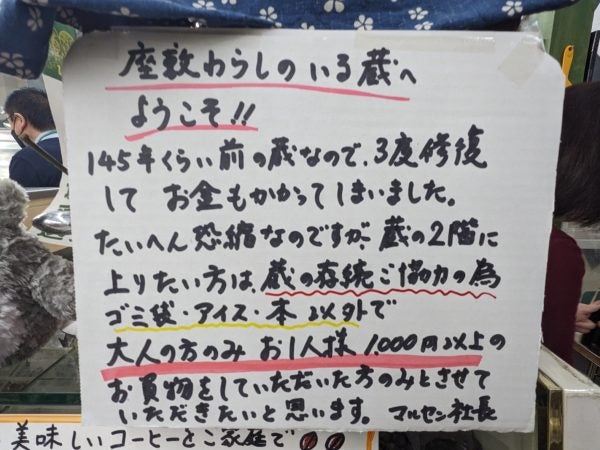 座敷わらしのいる蔵へ
ようこそ!!
145年くらい前の蔵なので、3度修復
して お金もかかってしまいました。
たいへん恐縮なのですが、蔵の2階に
上りたい方は、蔵の存続ご協力の為
ゴミ袋・アイス・本以外で
大人の方のみ お1人様 1,000円以上の
お買物をしていただいた方のみとさせて
いただきたいと思います。マルセン社長
美味しいコーヒーをご家庭で